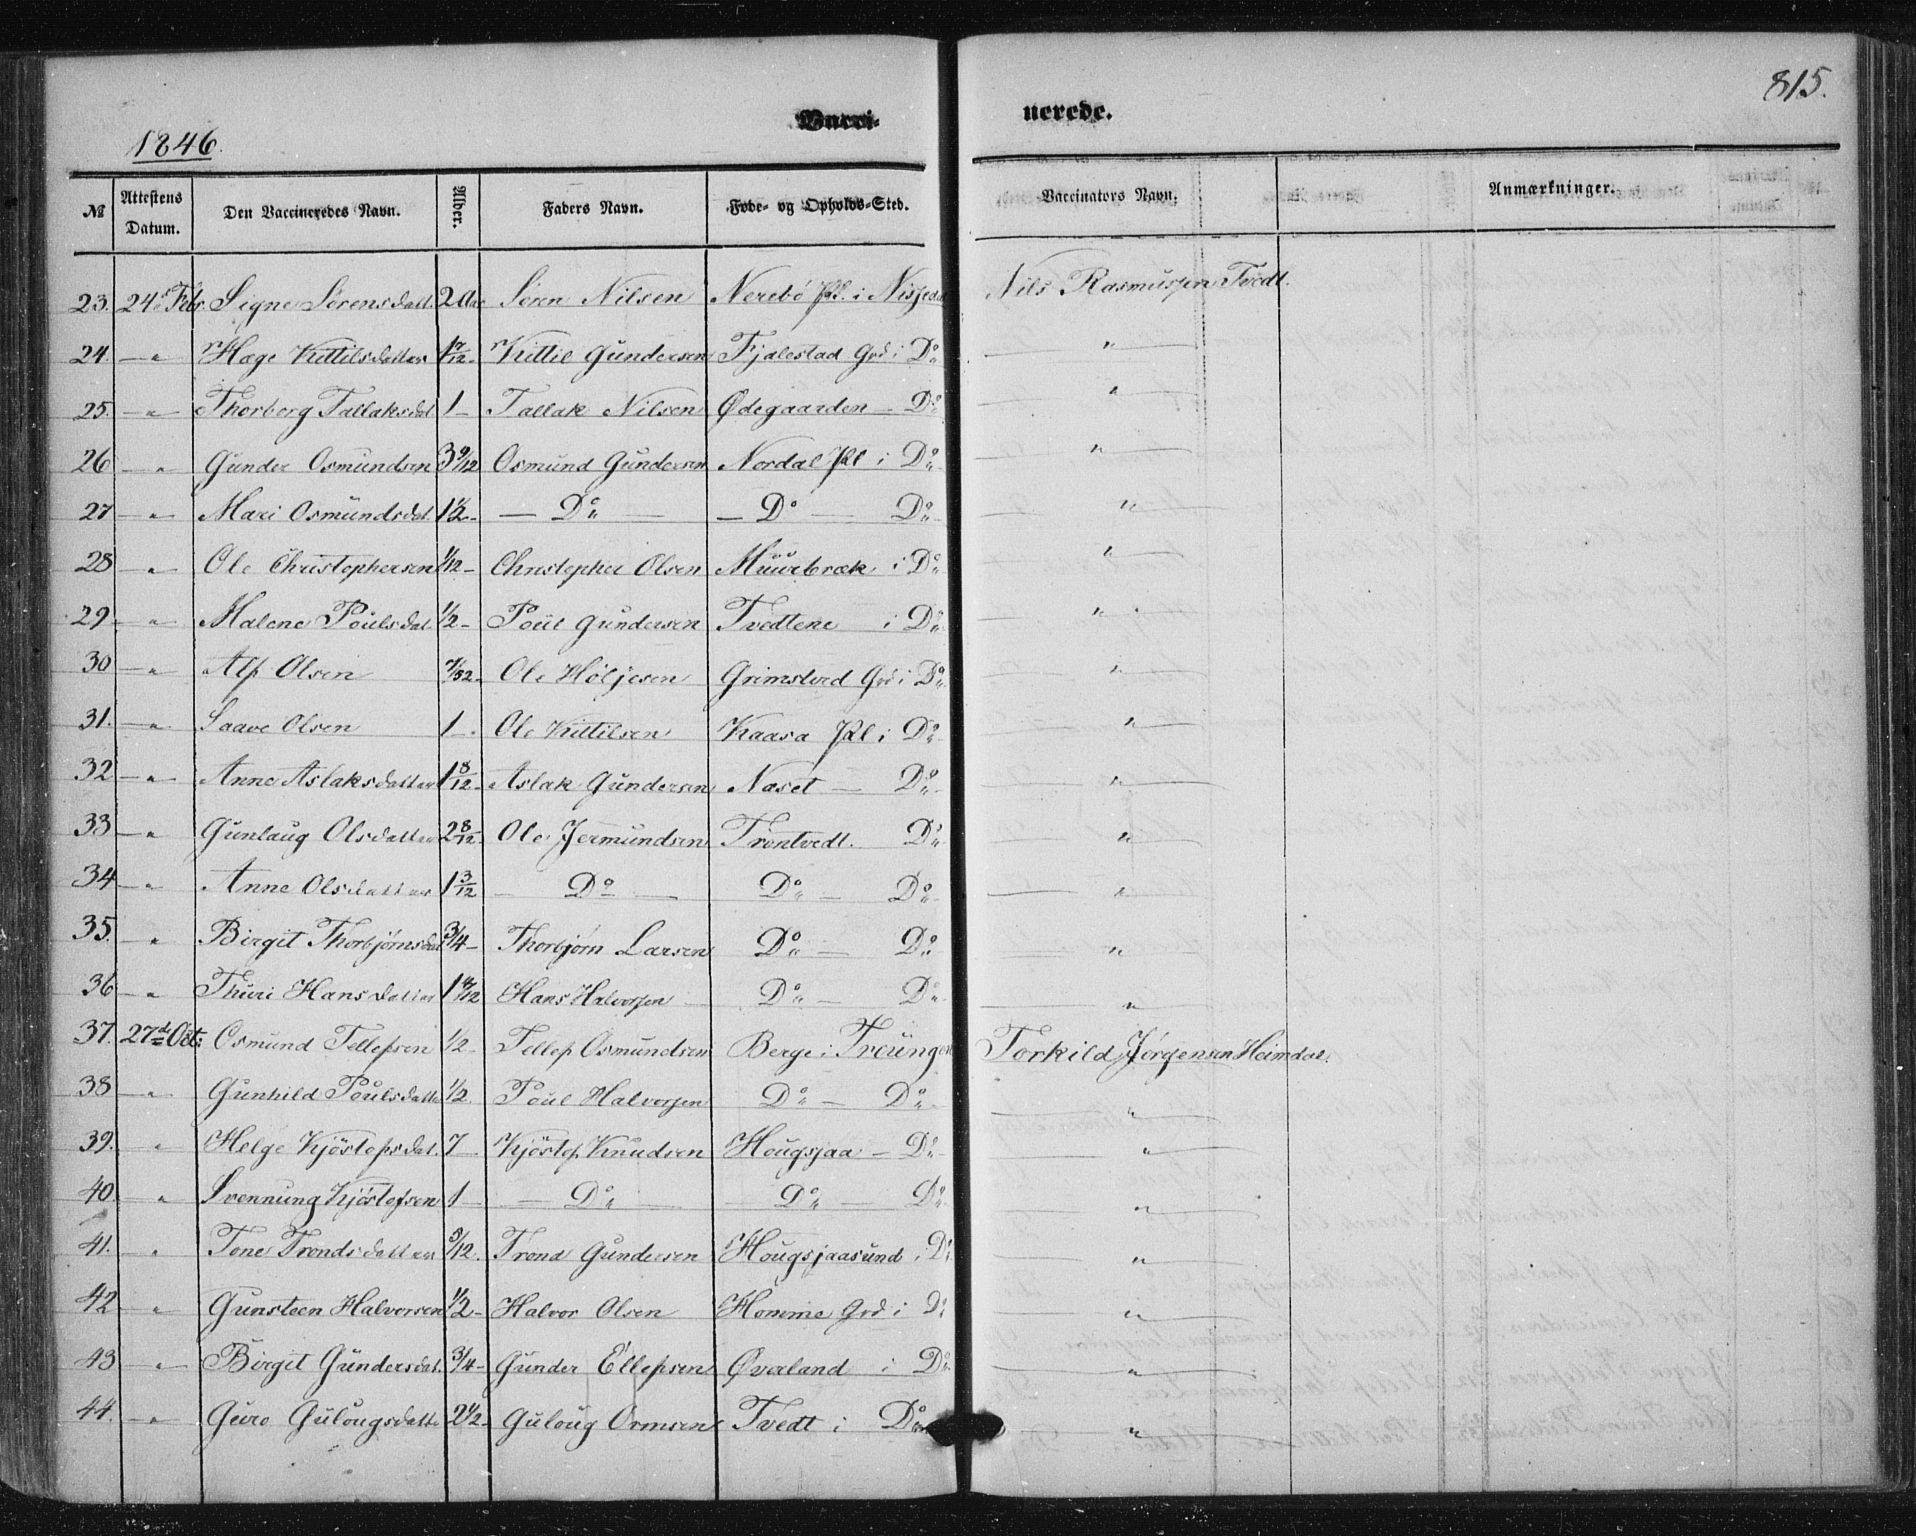 815.
1846.
Vacci-
nerede.
№ Attestens Datum. Den Vaccineredes Navn. Alder. Faders Navn. Føde- og Opholds-Sted. Vaccinators Navn. Anmærkninger.
23. 24de Febr. Signe Sørensdatt. 2 Aar Søren Nilsen Nerebö Pl. i Nissedal Nils Rasmussen Tvedt.
24. — „ — Hæge Kittilsdatter 1 7/12 - Kittil Gundersen Fjalestad Grd i Do — „ —
25. — „ — Thorberg Tallaksdat 1 — Tallak Nilsen Ødegaarden — Do — „ —
26 — „ Gunder Osmundsen 3 9/12 Osmund Gundersen Nordal Pl i Do — „ —
27 — „ — Mari Osmundsdat. 1 1/2 - — Do — — Do — Do — „ —
28 — „ Ole Christophersen 1/12 - Christopher Olsen Muurbræk i Do — „ —
29. — „ Malene Poulsdat. 1/2 - Poul Gundersen Tvedtene i Do — „ —
30 — „ — Alf Olsen 7/52 - Ole Höljesen Grimstved Grd i Do — „ —
31. — „ — Saave Olsen 1 - Ole Kittilsen Kaasa Pl i Do — „ —
32 — „ — Anne Aslaksdatter 1 8/12 - Aslak Gundersen Næset — Do — „ —
33 — „ Gunlaug Olsdatter 2 8/12 - Ole Jermundsen Trontvedt. Do — „ —
34 — „ Anne Olsdatter 1 3/12 — Do — Do — Do — „ —
35. „ Birgit Thorbjørnsdat 3/4 - Thorbjørn Larsen Do — Do — „ —
36 — „ Thuri Hansdatter Hans Halvorsen — Do — Do — „
37. 27de Oct: Osmund Tellefsen 1/2 - Tellef Osmundsen Berge i Treungen Torkild Jørgensen Heimdal.
38 — „ Gunhild Poulsdatte 1/2 Poul Halvorsen Do — Do — „ —
39. „ Helge Kjöstofsdat. 7 — Kjöstof Knudsen Hougsjaa — Do — „ —
40. „ Svennung Kjöstofsen 1 — — Do — — Do — Do — „ —
41. „ Tone Trondsdatter Trond Gundersen Hougsjaasund i Do — „ —
42 „ Gunsteen Halvorsen 1/2 - Halvor Olsen Homme Grd i Do — „ —
43 — „ — Birgit Gundersdat. 3/4 - Gunder Ellefsen Øverland i Do — „ —
44. — „ — Guro Gulougsdatte 2 1/2 - Guloug Ormsen Tvedt i Do — „ —